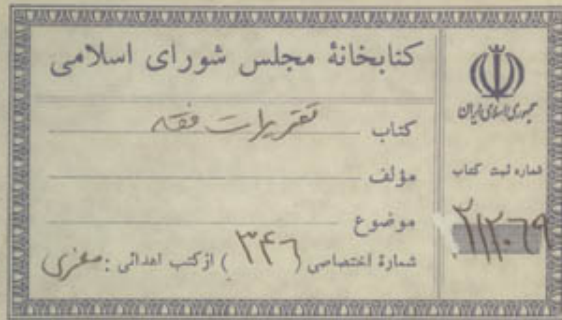 کتابخانهٔ مجلس شورای اسلامی
کتاب تقریرات فقه
مؤلف
موضوع
شمارهٔ اختصاصی (۳۴۶) از کتب اهدائی :
جمهوری اسلامی ایران
شماره ثبت کتاب
۲۱۲۰۶۹